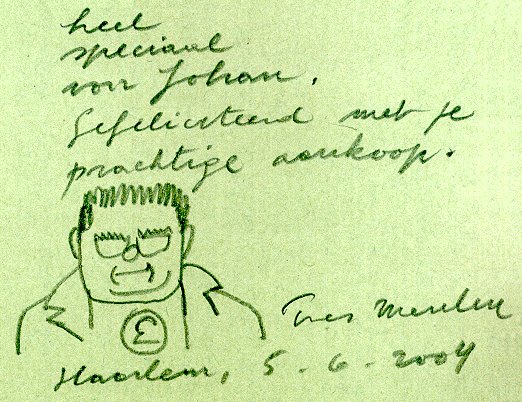 heel
speciaal
voor Johan.
Gefeliciteerd met je
prachtige aankoop.
£
Haarlem, 5 - 6 - 2004